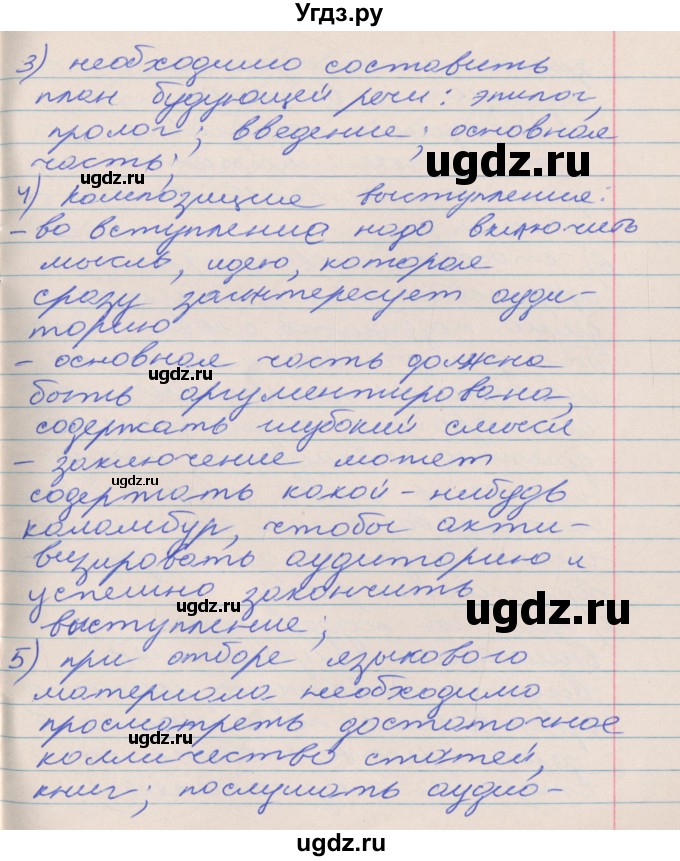 Угдз.ру
3) необходимо составить
план будующей речи: эпилог,
пролог; введение; основная
часть;
ugdz.ru
ugdz.ru
4) композицие выступления:
- во вступления надо включить
мысль, идею, которая
сразу заинтересует ауди-
торию
- основная часть должна
ugdz.ru
быть аргументирована,
содержать глубокий смысл
- заключение может
содержать какой-нибудь
ugdz.ru
каламбур, чтобы акти-
визировать аудиторию и
успешно закончить
ugdz.ru
ugdz.ru
выступление;
5) при отборе языкового
материала необходимо
просмотреть достаточное
ugdz.ru
колличество статей,
книг; послушать аудио-
ugdz.ru